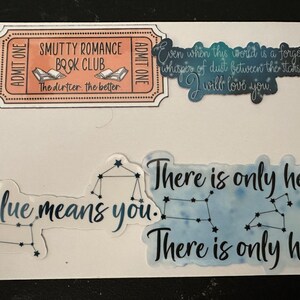 ADMIT ONE
SMUTTY ROMANCE
BOOK CLUB
The dirtier, the better
ADMIT ONE
Even when the world is a
whisper of dust between the stars
I will love you
lue means you.
There is only he
There is only h